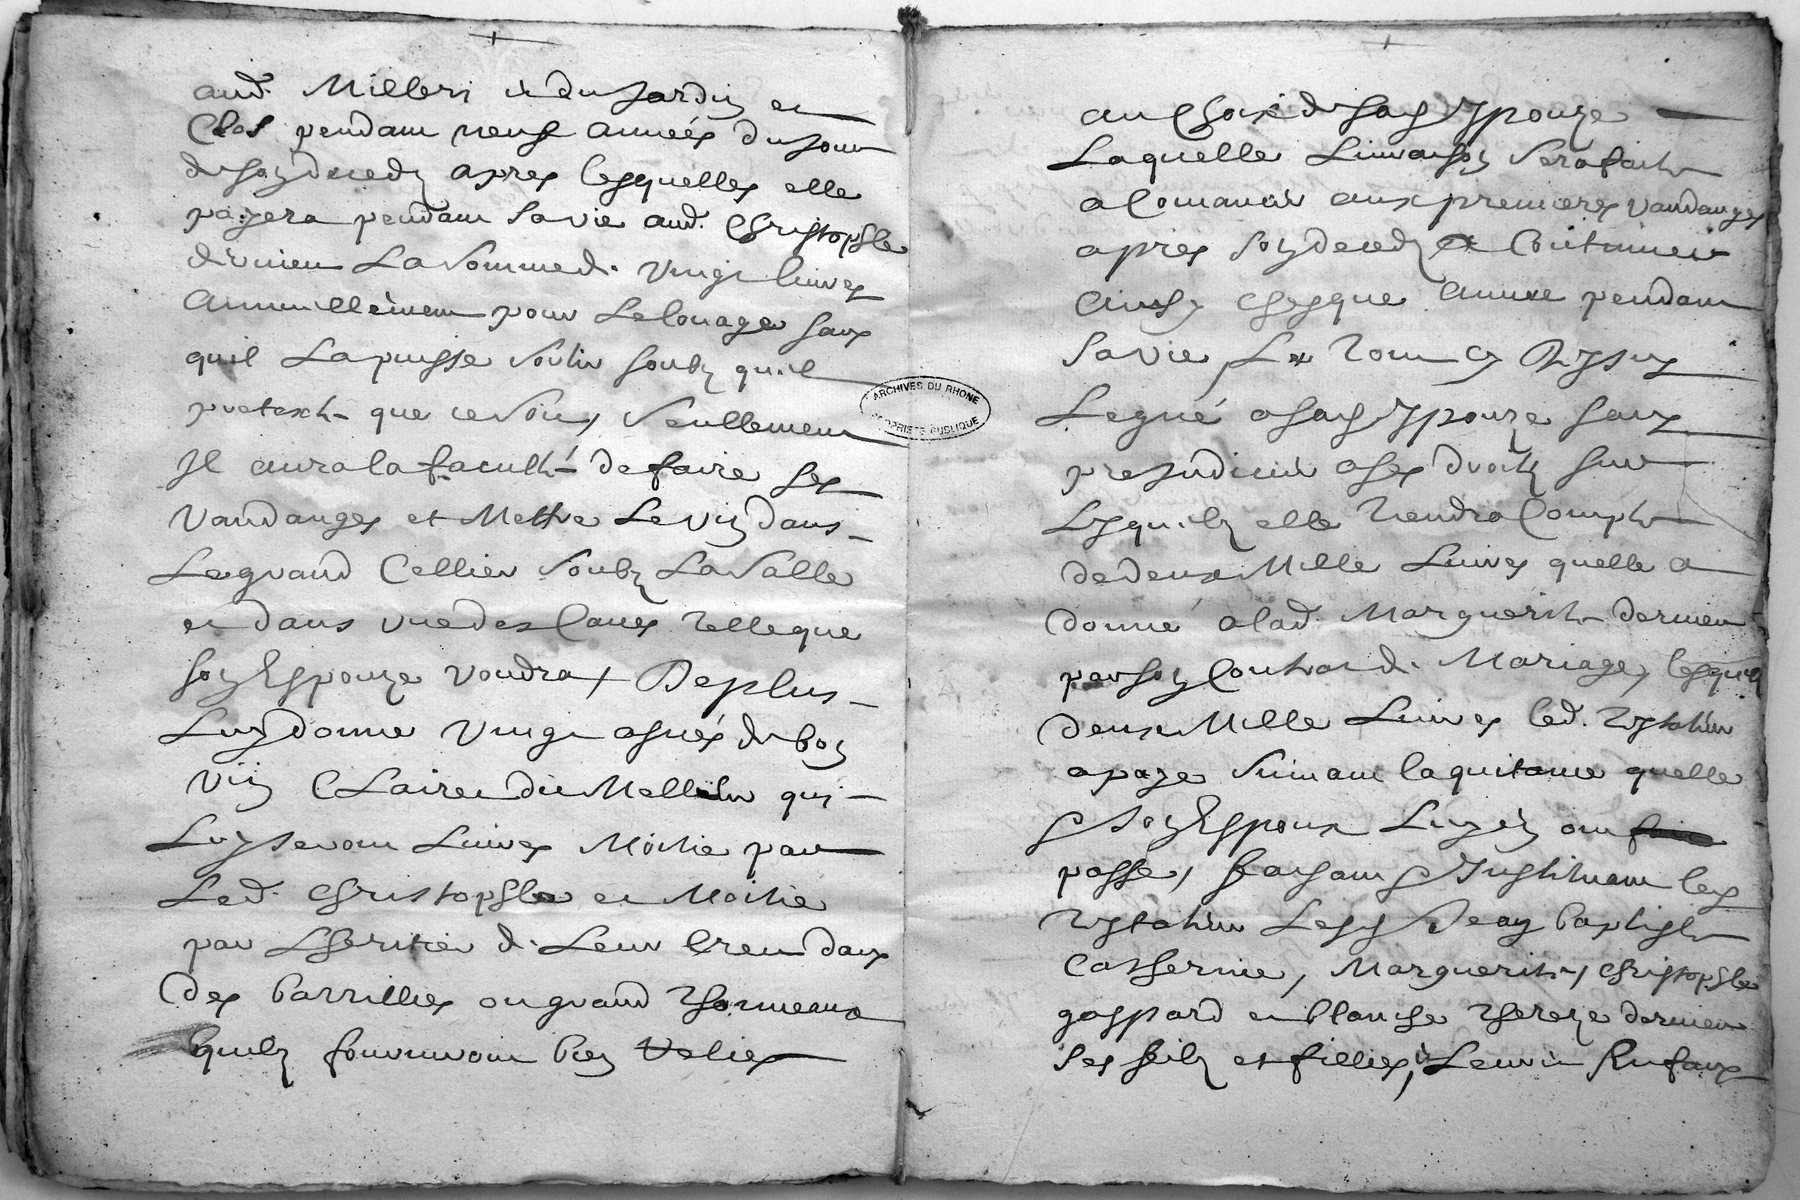 aud. Millery et du Jardin et
Clos pendant neuf années du jour
de son decedz apres lesquelles elle
payera pendant sa vie aud. Christophle
dermieu La somme de vingt livres
annuellement pour Le louage sans
quil La puisse sortir soubz quel
pretexte que ce soit, seullement
Il aura la faculté de faire ses
Vandanges et Mettre Le vin dans
Le grand Cellier soubz La salle
et dans une des Caves telle que
son Espouze voudra, De plus
Luy donne vingt asnés de bon
vin Clair et du Meilleur qui
Luy seront Livrés Moitié par
Led. Christophle et Moitié
par Lheritier de Leur creu dans
des barrilles ou grand thonneaux
quilz fourniront bien reliés
au Choix de sad. Espouze
Laquelle Livraison sera faite
a Comancer aux premieres vandanges
apres son decedz et Continuer
ainsy chesque année pendant
sa vie, Le tout cy dessus
Legué a sad. Espouze sans
prejudicier a ses droitz sur
Lesquelz elle tiendra Compte
de deux Mille Livres quelle a
donné a lad. Marguerite dermieu
par son Contract de Mariage, lesquelz
deux Mille Livres led. testateur
a payé suivant la quitance quelle
et son Espoux Luy en ont
passé, faisant et Instituant led.
testateur Lesd. Jean baptiste
Catherine, Marguerite, Christophle
gaspard et blanche therese dermieu
ses filz et filles, et Leurs Enfans
ARCHIVES DU RHONE
PROPRIETE PUBLIQUE